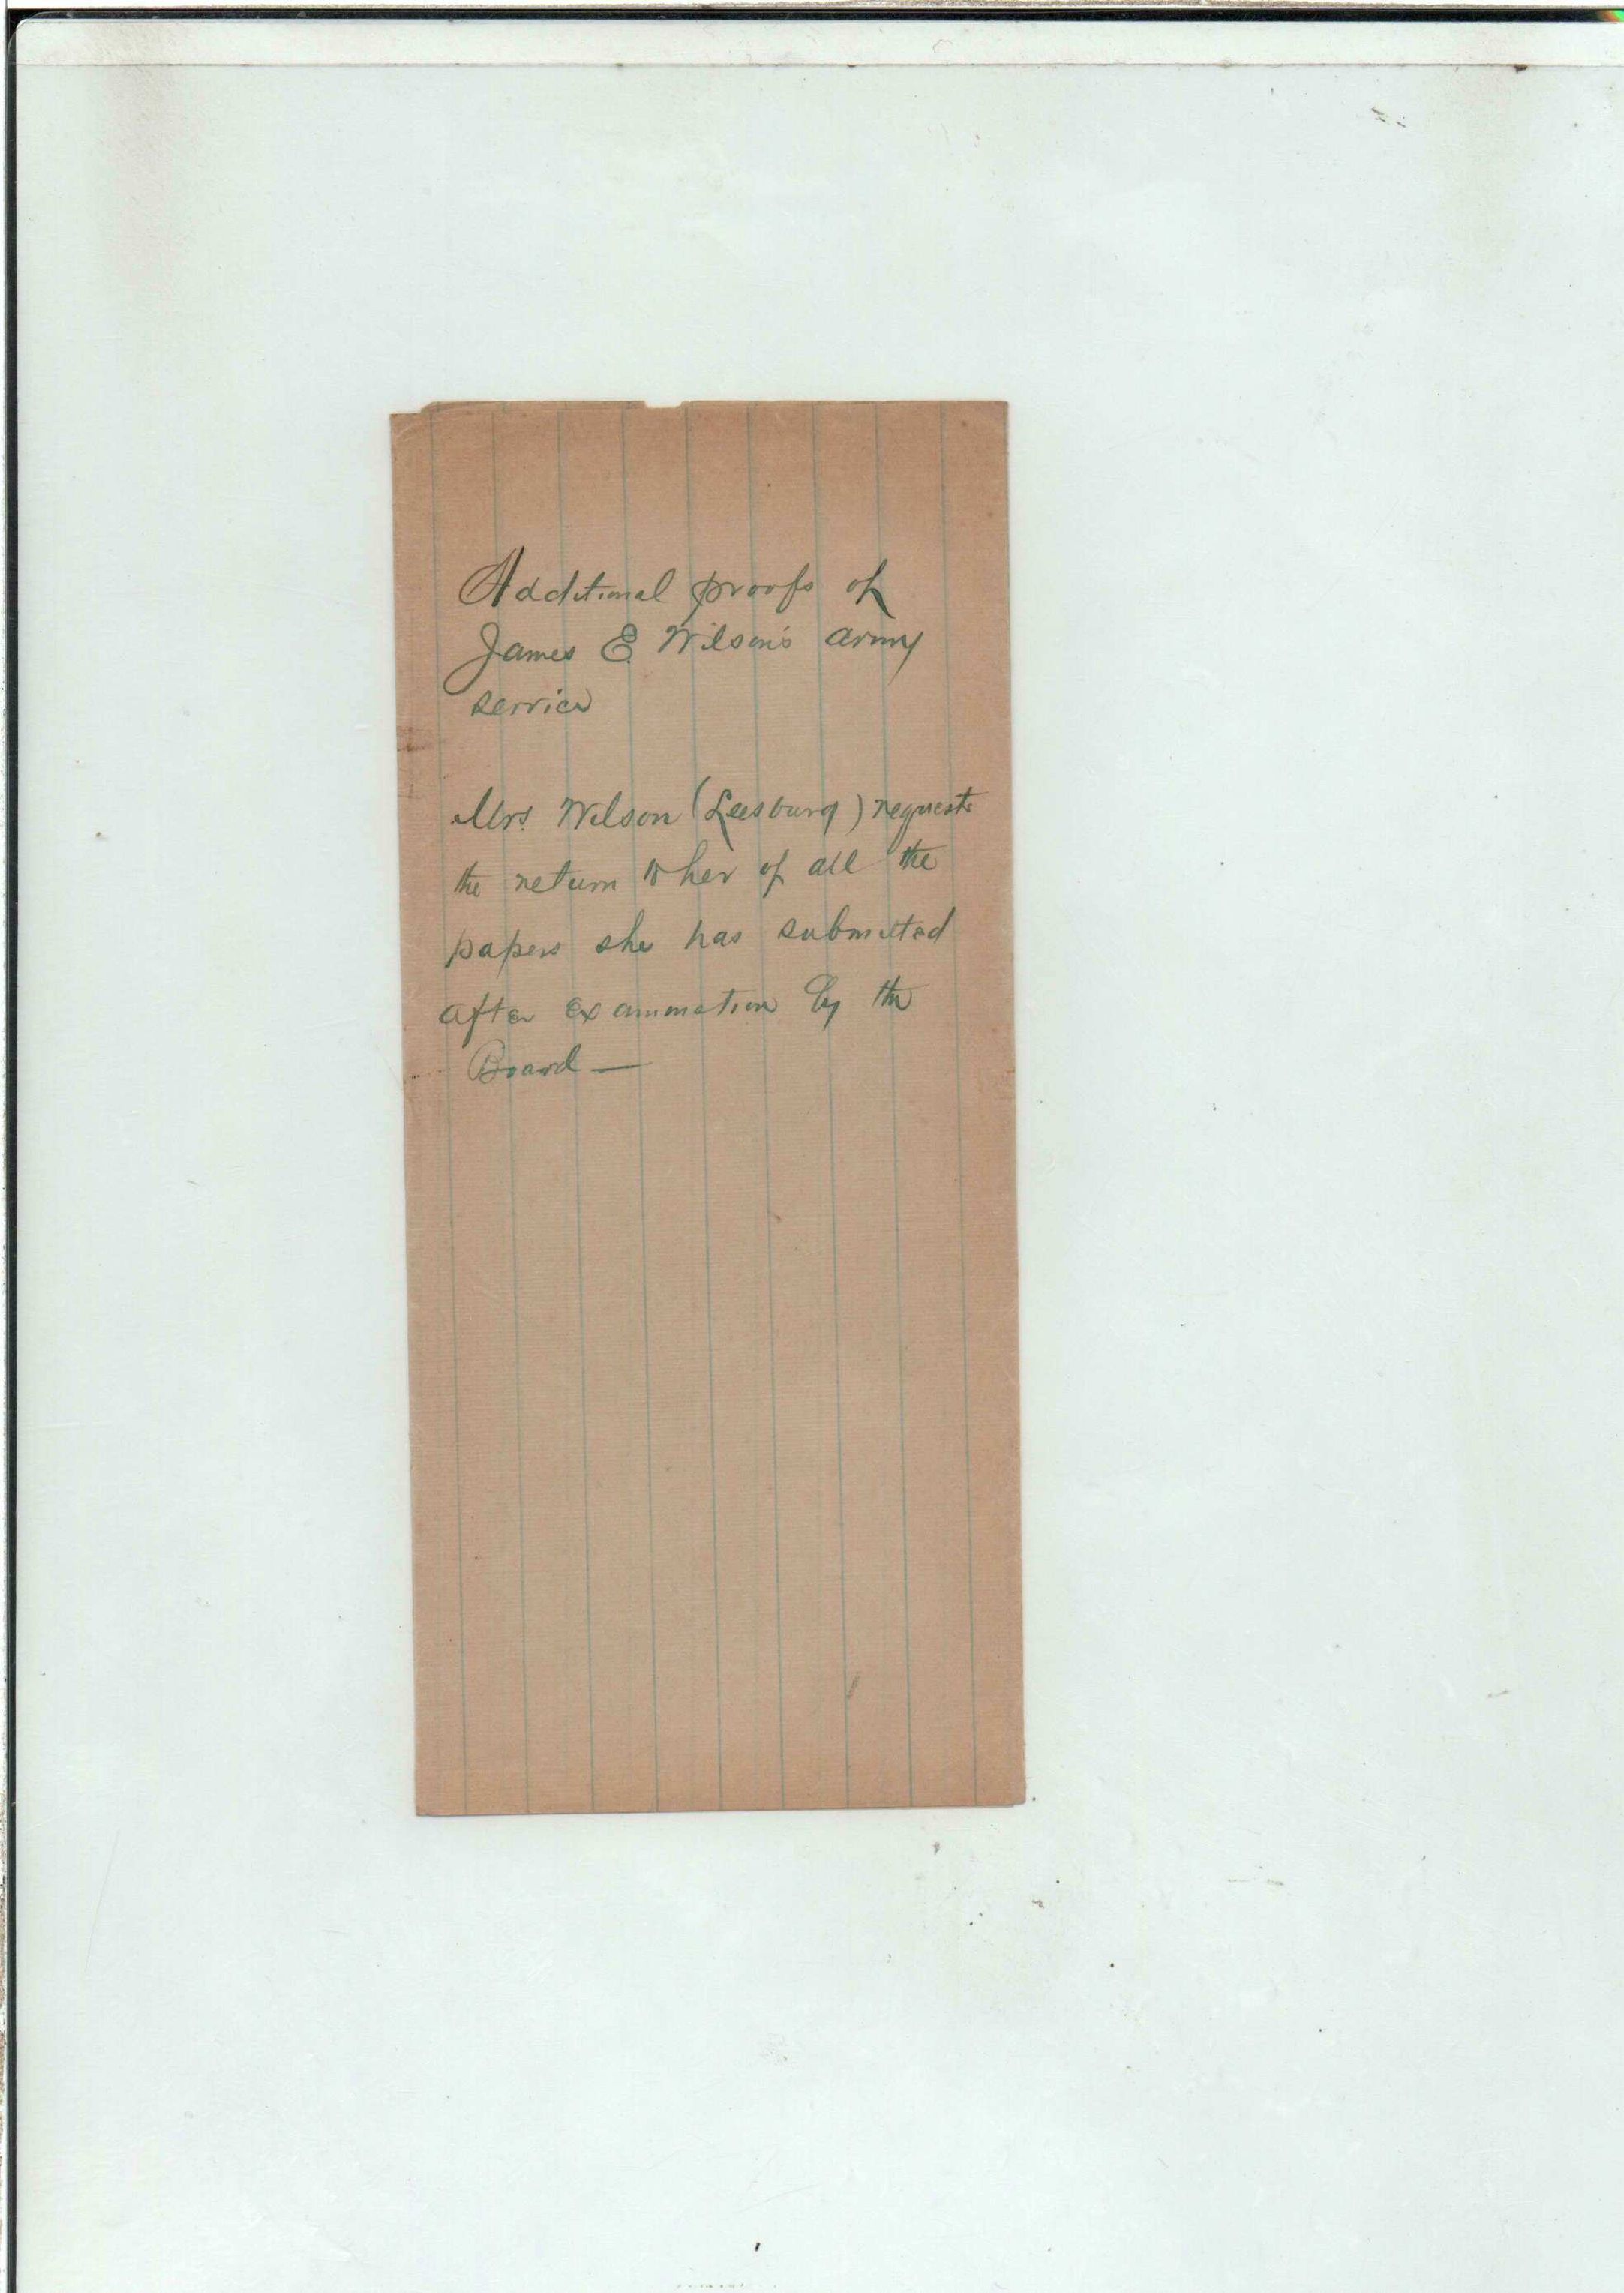 Additional proofs of
James E. Wilson's army
service
Mrs. Wilson (Leesburg) requests
the return to her of all the
papers she has submitted
after examination by the
Board —